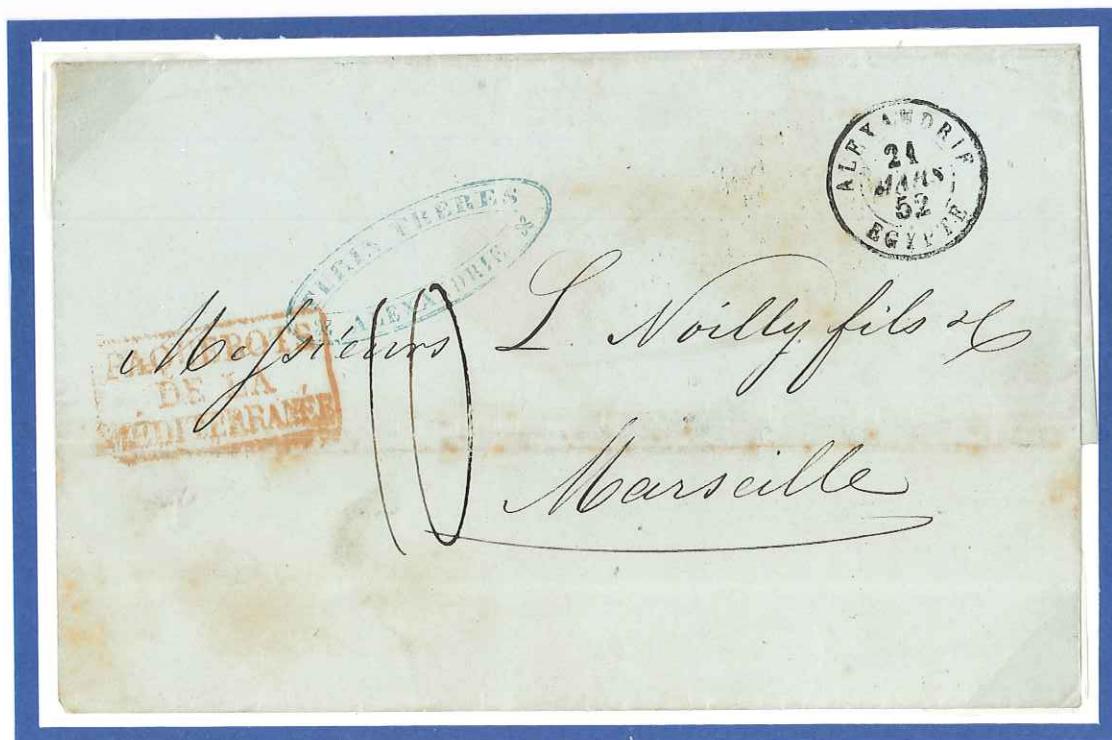 ALEXANDRIE
MARS
52
EGYPTE
FRERES
ALEXANDRIE
PAQUEBOTS
DE LA
MÉDITERRANÉE
Messieurs L. Noilly fils & C
Marseille
10